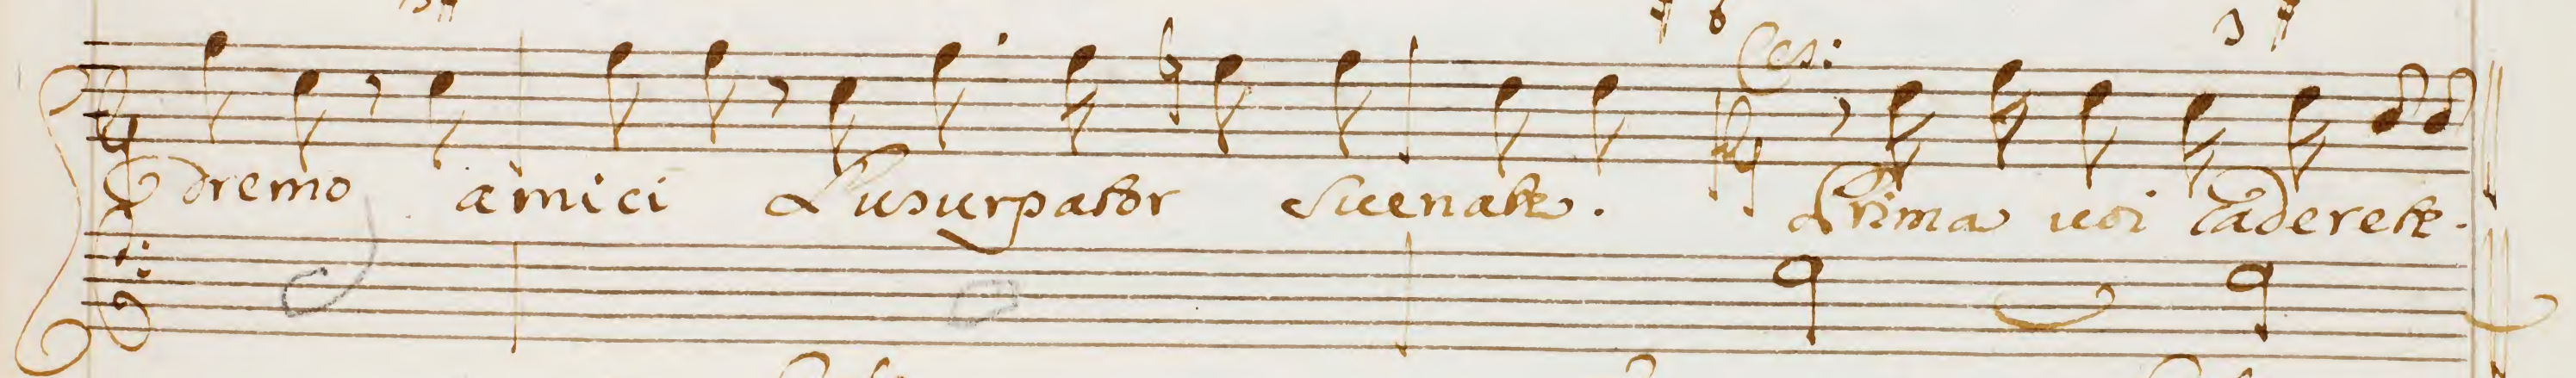 Ces:
dremo amici L'usurpator suenate. Prima uoi caderete.